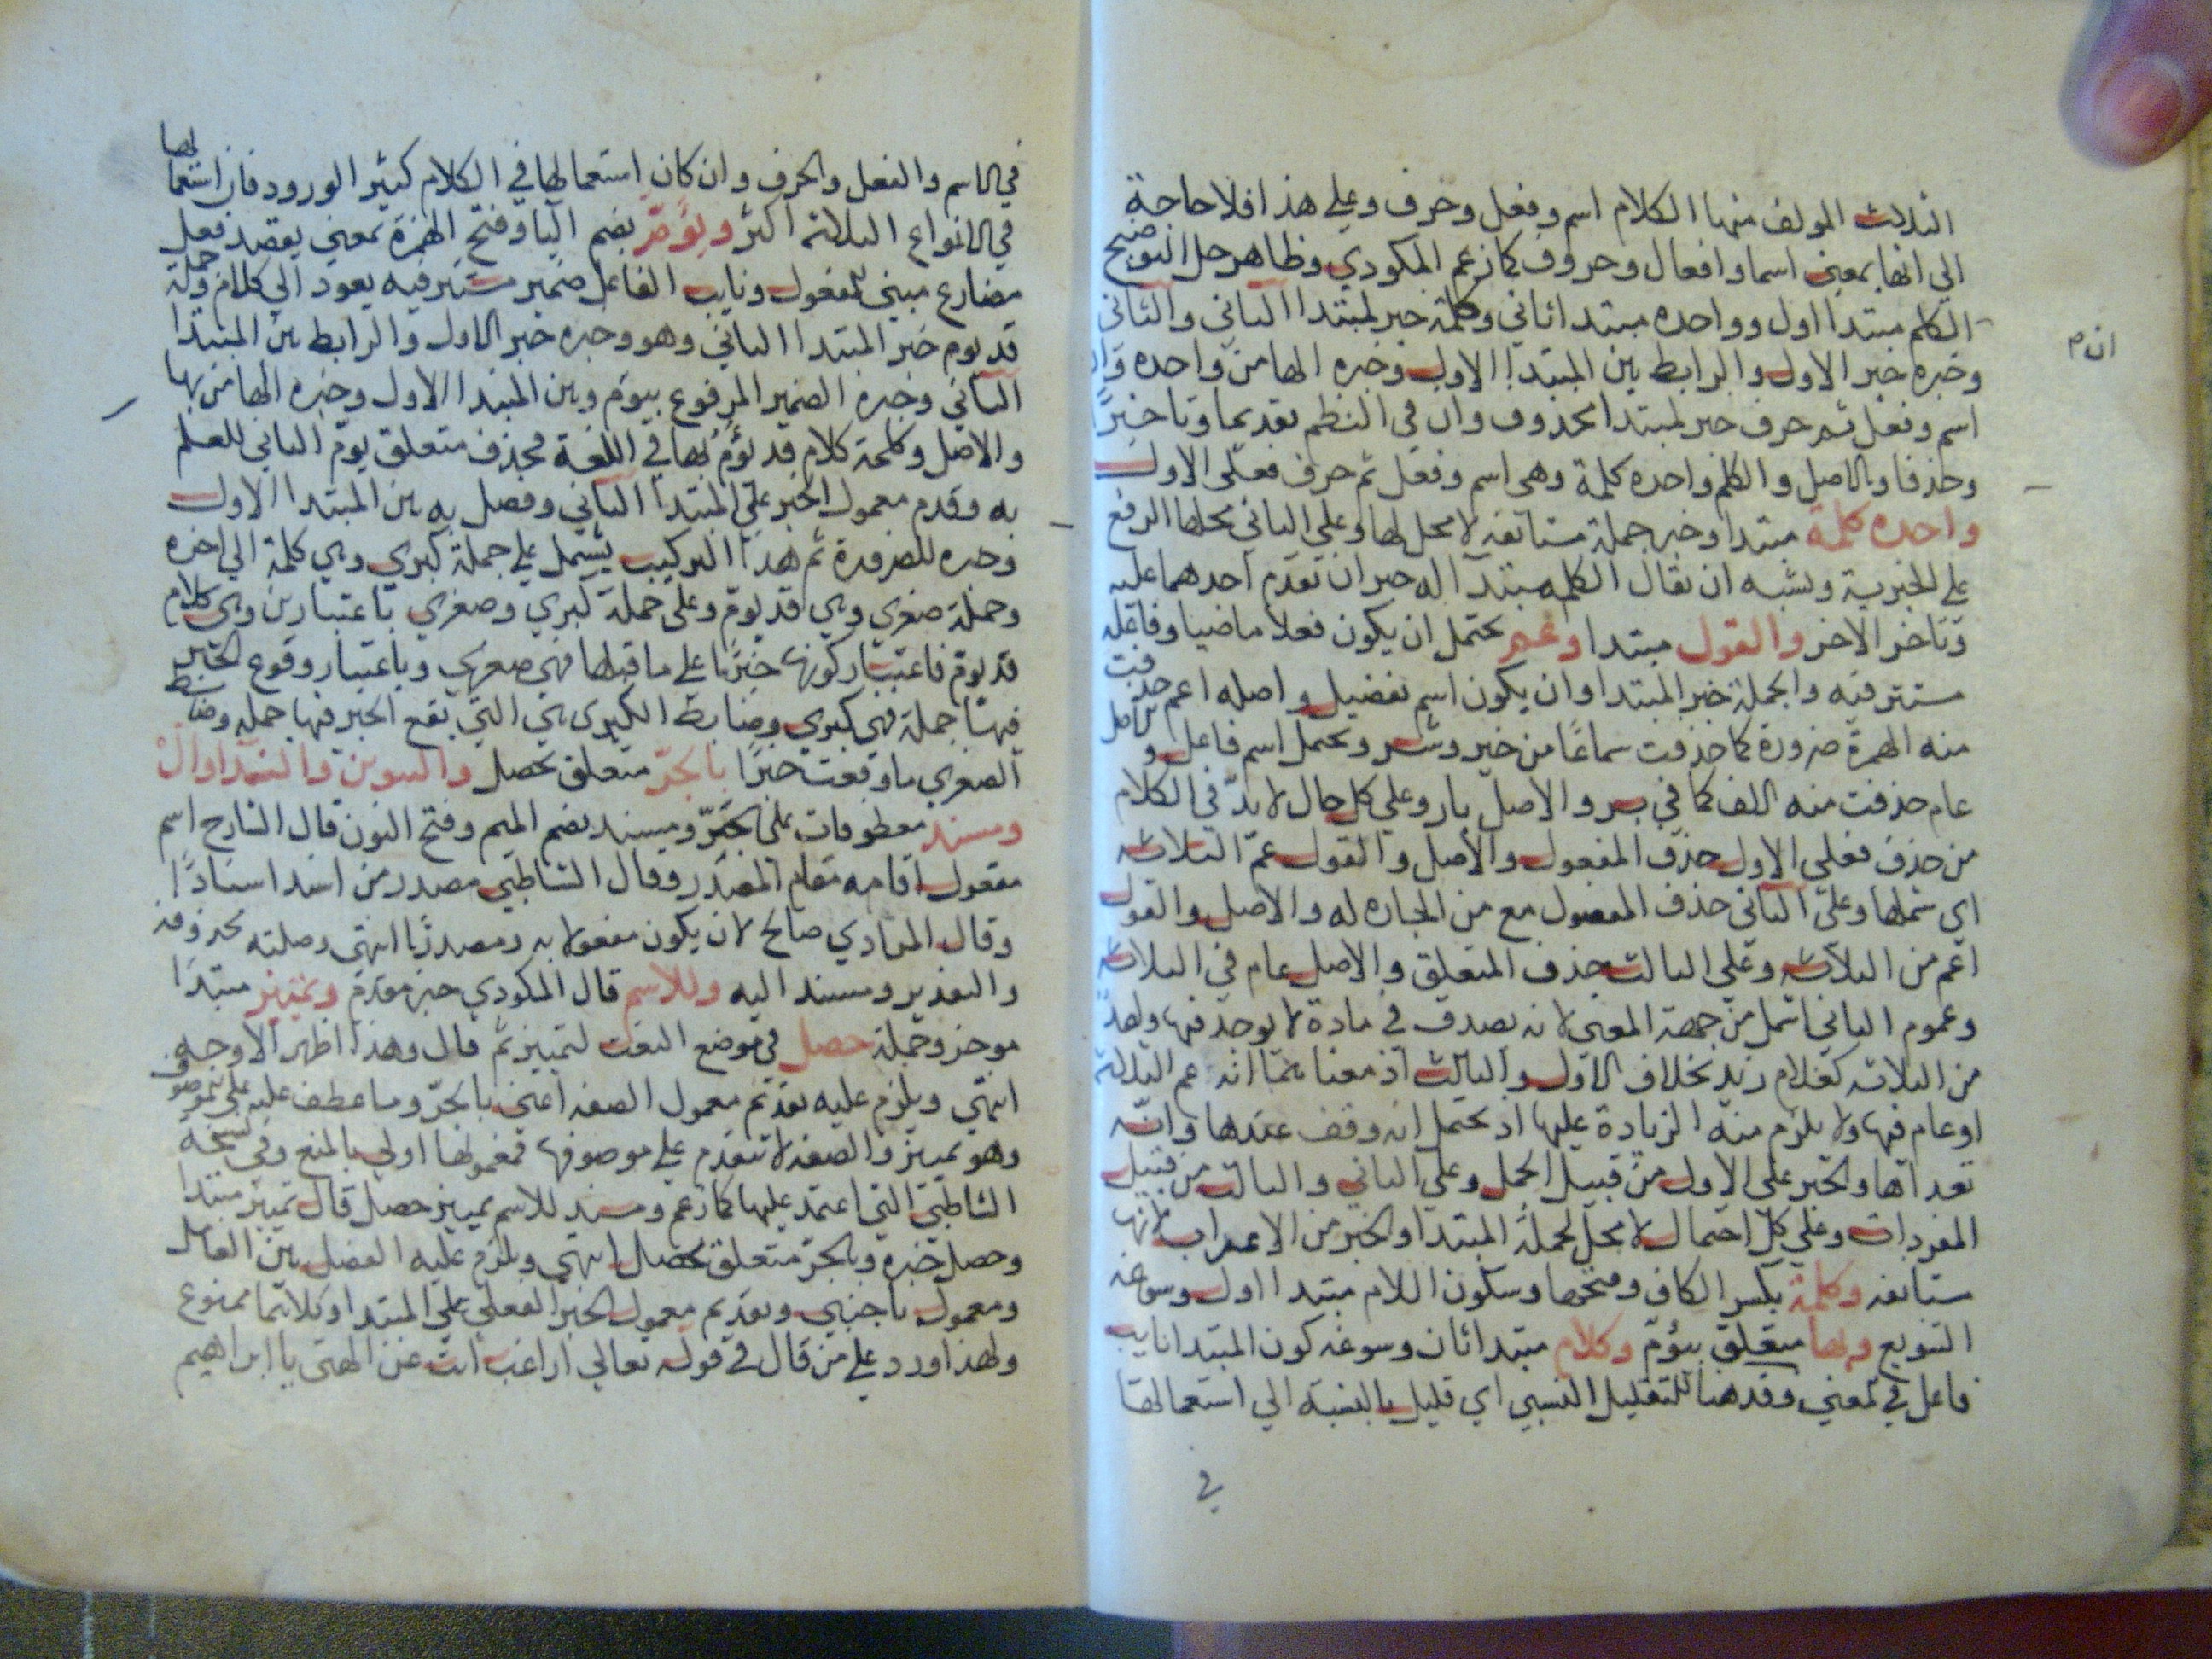 الثلاث المولف منها الكلام اسم وفعل وحرف وعلي هذا فلا حاجة
الي انها بمعني اسما وافعال وحروف كما زعم المكودي وظاهر حل التوضيح
ان الكلم مبتدا اول وواحده مبتدا ثاني وكلمة خبر لمبتدا الثاني والثاني
وخبره خبر الاول والرابط بين المبتدا الاول وخبره الها من واحده وان
اسم وفعل ثم حرف خبر لمبتدا محذوف وان في النظم تقديما وتاخيرا
وحذفا والاصل والكلم واحده كلمة وهي اسم وفعل ثم حرف فعلي الاول
واحده كلمة مبتدا وخبر جملة مستانفه لا محل لها وعلي الثاني محلها الرفع
علي الخبرية ويشبه ان يقال الكلم مبتدا له خبران تقدم احدهما عليه
وتاخر الاخر والقول مبتدا وعم يحتمل ان يكون فعلا ماضيا وفاعله
مستتر فيه والجملة خبر المبتدا وان يكون اسم تفضيل واصله اعم حذفت
منه الهمزة ضرورة كما حذفت سماعًا من خير وشر ويحتمل اسم فاعل والاصل
عام حذفت منه الالف كما في بر والاصل بار وعلي كل حال لا بدّ في الكلام
من حذف فعلي الاول حذف المفعول والاصل والقول عمّ الثلاثه
اي شملها وعلي الثاني حذف المفضول مع من الجاره له والاصل والقول
اعم من الثلاثه وعلي الثالث حذف المتعلق والاصل عام في الثلاثه
وعموم الثاني اشمل من جهة المعني لانه يصدق في مادة لا يوجد فيها واحد
من الثلاثه كغلام زيد بخلاف الاول والثالث اذ معناهما انه عم الثلاثه
او عام فيها ولا يلزم منه الزيادة عليها اذ يحتمل انه وقف عندها وانه
تعداها والخبر علي الاول من قبيل الجمل وعلي الثاني والثالث من قبيل
المفردات وعلي كل احتمال لا محل لجملة المبتدا والخبر من الاعراب لانها
مستانفه وكلمة بكسر الكاف وفتحها وسكون اللام مبتدا اول وسوغه
التنويع وبها متعلق بيؤم وكلام مبتدا ثان وسوغه كون المبتدا نايب
فاعل في المعني وقد هنا للتقليل النسبي اي قليل بالنسبة الي استعمالها
في
في الاسم والفعل والحرف وان كان استعمالها في الكلام كثير الورود فان استعمالها
في الانواع الثلاثه اكثر ويؤمّ بضم اليا وفتح الهمزة بمعني يقصد فعل
مضارع مبني للمفعول ونايب الفاعل ضمير مستتر فيه يعود الي كلام وجملة
قد يوم خبر المبتدا الثاني وهو وخبره خبر الاول والرابط بين المبتدا
الثاني وخبره الضمير المرفوع بيوم وبين المبتدا الاول وخبره الها من بها
والاصل وكلمة كلام قد يؤم بها في اللغة فحذف متعلق يوم الثاني للعلم
به وقدم معمول الخبر علي المبتدا الثاني وفصل به بين المبتدا الاول
وخبره للضرورة ثم هذا التركيب يشتمل علي جملة كبري وهي كلمة الي اخره
وجملة صغري وهي قد يوم وعلي جملة كبري وصغري باعتبارين وهي كلام
قد يوم فاعتبار كونها خبرًا علي ما قبلها فهي صغري وباعتبار وقوع الخبر
فيها جملة فهي كبري وضابط الكبري هي التي يقع الخبر فيها جملة وضابط
الصغري ما وقعت خبرًا بالجرّ متعلق بحصل والتنوين والندا وال
ومسند معطوفات علي الجرّ ومسند بضم الميم وفتح النون قال الشارح اسم
مفعول اقامه مقام المصدر وقال الشاطبي مصدر من اسند اسنادًا
وقال المرادي صالح لان يكون مفعولا به ومصدرًا انتهي وصلته محذوفه
والتقدير ومسند اليه وللاسم قال المكودي خبر مقدم وتمييز مبتدا
موخر وجملة حصل في موضع النعت لتمييز ثم قال وهذا اظهر الاوجه
انتهي ويلزم عليه تقديم معمول الصفه اعني بالجرّ وما عطف عليه علي الموصوف
وهو تمييز والصفه لا تتقدم علي موصوفها فمعمولها اولي بالمنع وفي نسخة
الشاطبي التي اعتمد عليها كما زعم ومسند للاسم تمييز حصل قال تمييز مبتدا
وحصل خبره وبالجرّ متعلق بحصل انتهي ويلزم عليه الفصل بين العامل
ومعمول باجنبي وتقديم معمول الخبر الفعلي علي المبتدا وكلاهما ممنوع
ولهذا ورد علي من قال في قوله تعالي اراغب انت عن الهتي يا ابراهيم